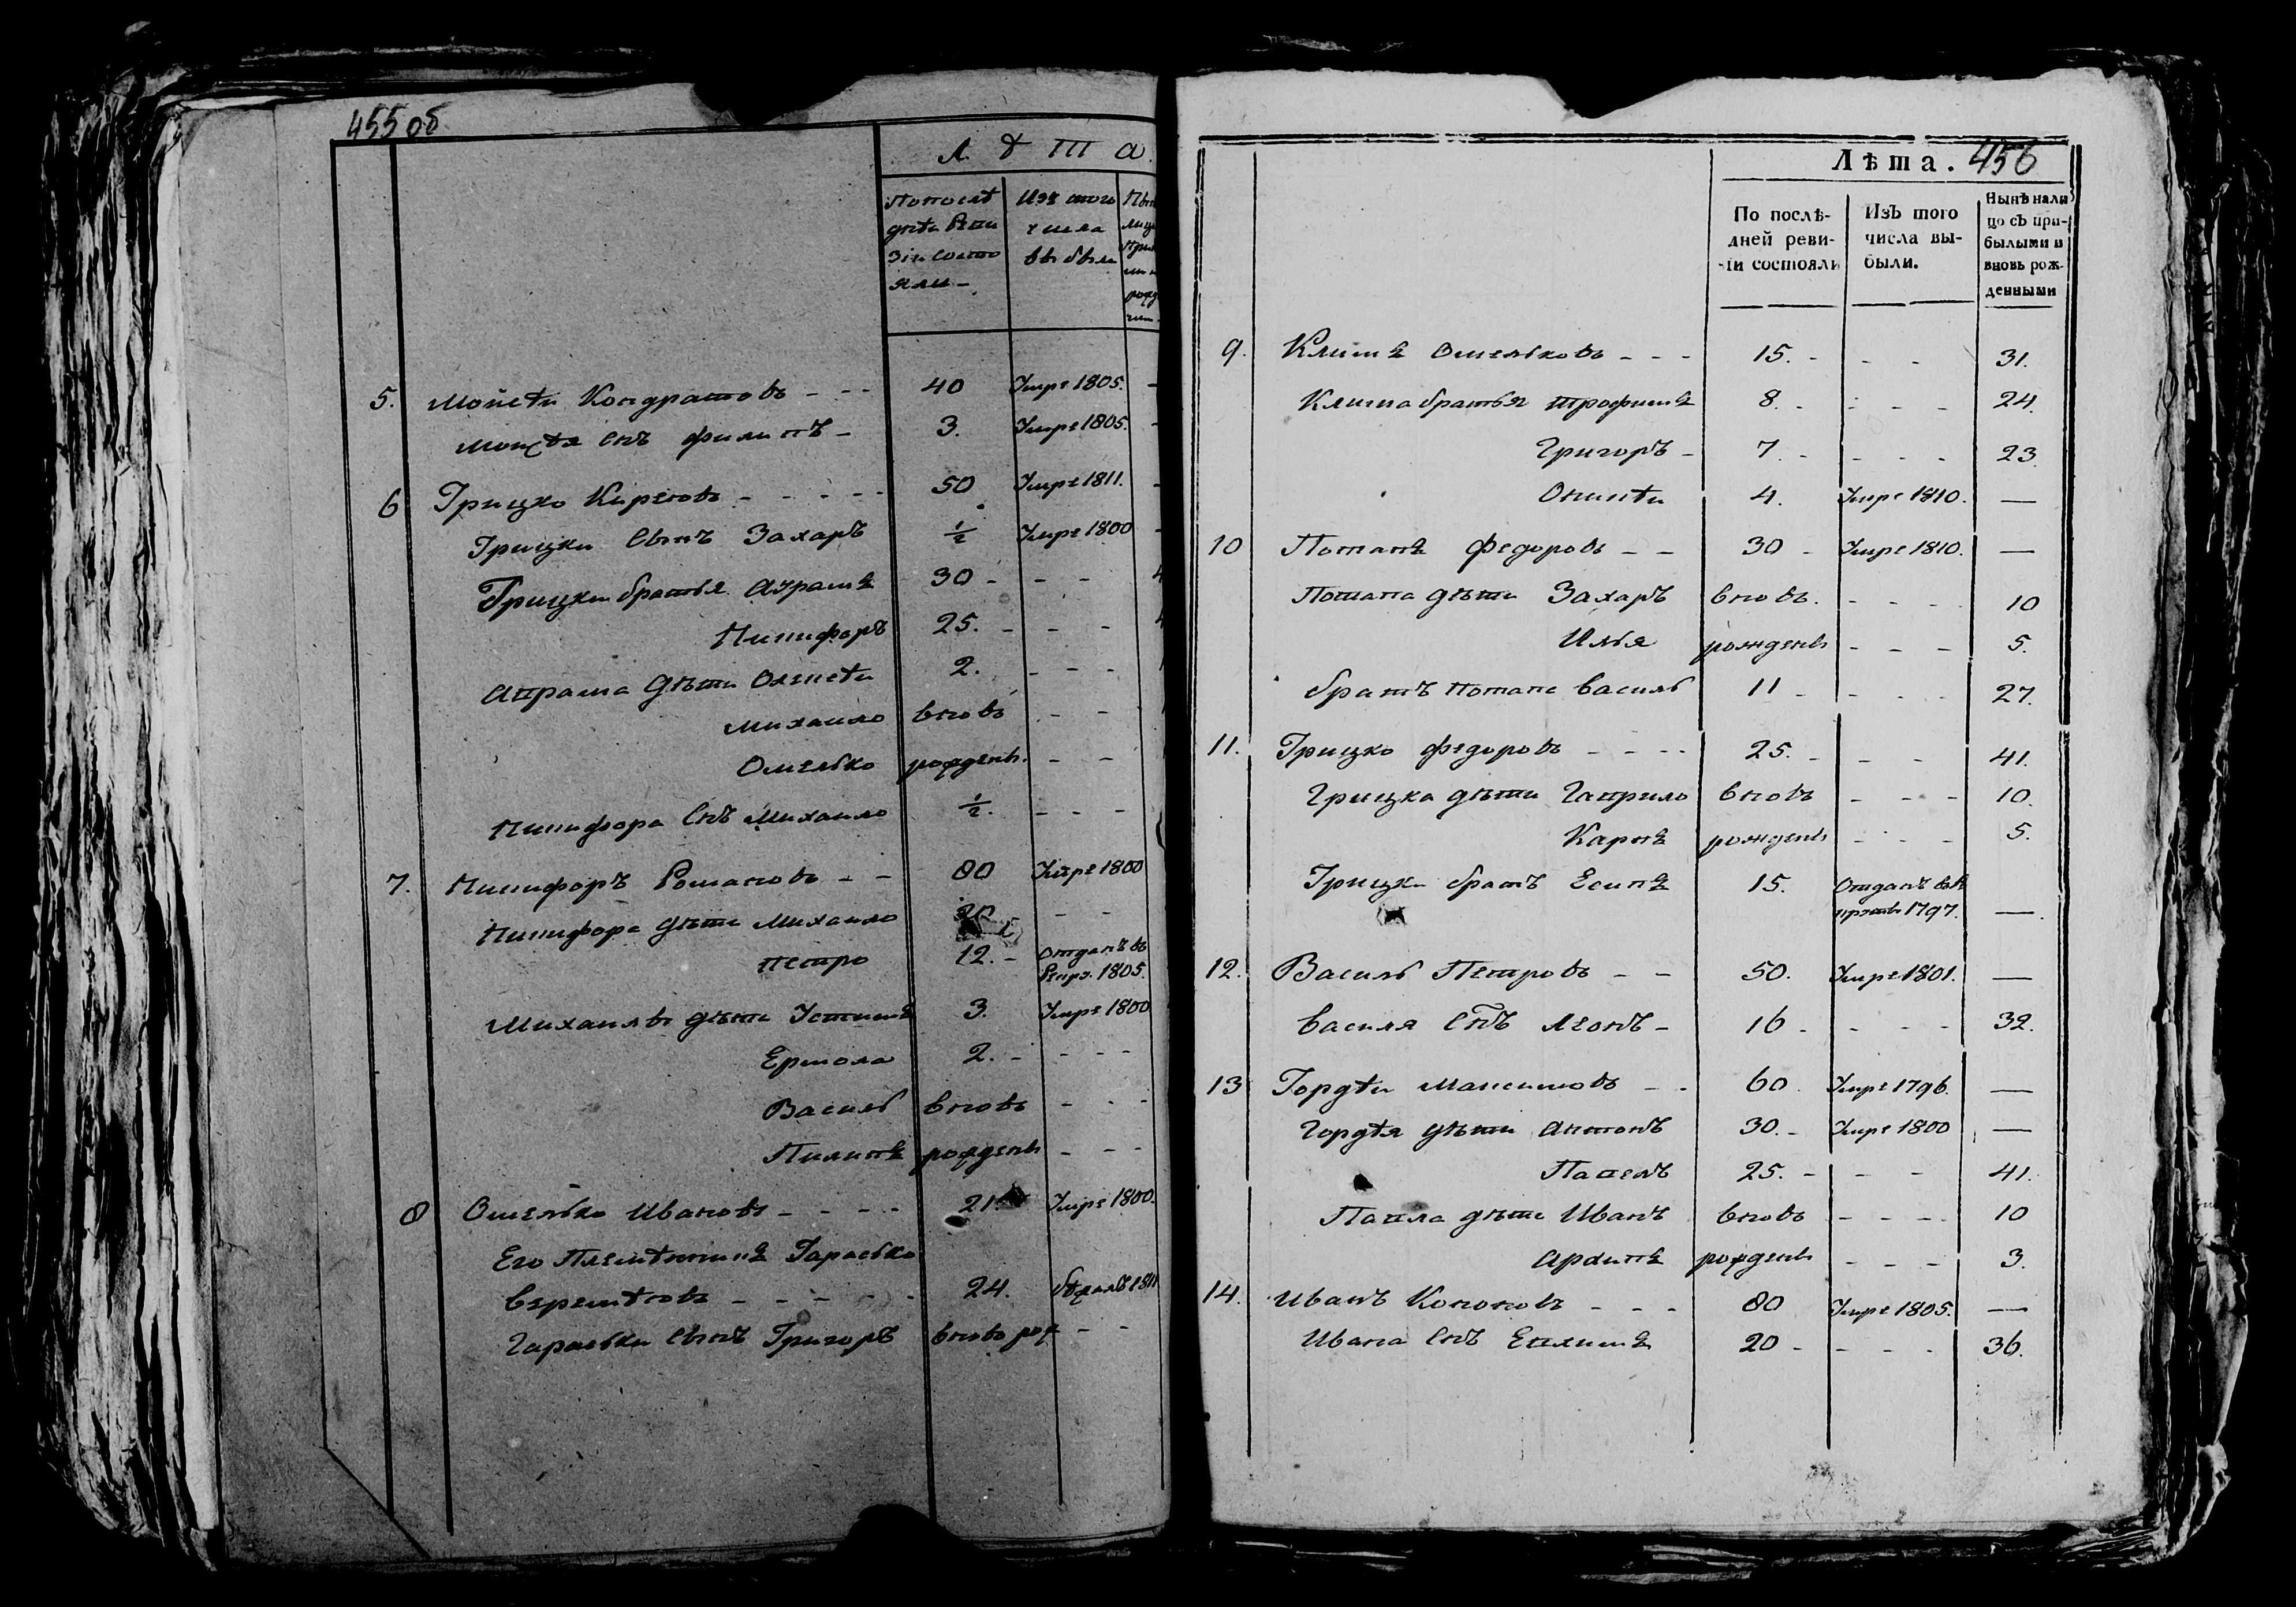 455 об
Л ѣ т а.
Попослѣ Изъ того
дней Реви числа
зіи состо выбыли
яли
5. Мойсѣй Кондратовъ - - - 40 Умре 1805.
Мойсѣя Снъ Филипъ - 3. Умре 1805.
6 Грицко Киреевъ - - - - - 50 Умре 1811.
Грицки Сынъ Захаръ ½ Умре 1800
Грицки братья Аврамъ 30 - - -
Ничифоръ 25. - - -
Аврама дѣти Олексѣй 2. - - -
Михайло вновь - -
Омелько рожденъ. - -
Ничифора Снъ Михайло ½. - - -
7. Ничифоръ Романовъ - - 80 Умре 1800
Ничифора дѣти Михайло - -
Петро 12. - Отданъ въ
Рекр. 1805.
Михайлы дѣти Устимъ 3. Умре 1800
Ермола 2. - - - -
Василь вновь - - -
Пилипъ рожденъ - - -
8 Омелько Ивановъ - - - - 21 Умре 1800.
Его Племѣнникъ Гарасько
Веремѣевъ - - - - - 24. бѣжалъ 1811
Гараськи Сынъ Григоръ вновь рож - -
Лѣта. 456
По послѣ- Изъ того Нынѣ нали
дней реви- числа вы- цо съ при-
зіи состояли были. былыми и
вновь рож-
денными
9. Климъ Омельковъ - - - 15. - - - 31.
Клима братья Трофимъ 8. - - - - 24.
Григоръ - 7. - - - - 23
Оникѣй 4. Умре 1810. —
10 Потапъ Федоровъ - - 30 - Умре 1810. —
Потапа дѣти Захаръ вновь. - - - - 10
Илья рожденъ - - - 5.
братъ Потапа Василь 11 - - - - 27.
11. Грицко Федоровъ - - - - 25. - - - 41.
Грицка дѣти Гаврило вновь - - - 10.
Карпъ рожденъ - - - 5.
Грицки братъ Есипъ 15. Отданъ въ Ре
крты 1797. —
12. Василь Петровъ - - 50. Умре 1801. —
Василя Снъ Леонъ - 16 - - - - 32.
13 Гордѣй Максимовъ - - 60. Умре 1796. —
Гордѣя дѣти Антонъ 30. - Умре 1800 —
Павелъ 25. - - - 41.
Павла дѣти Иванъ вновь - - - - 10
Архипъ рожденъ - - - 3.
14. Иванъ Кононовъ - - - 80 Умре 1805. —
Ивана Снъ Евхимъ 20 - - - - 36.